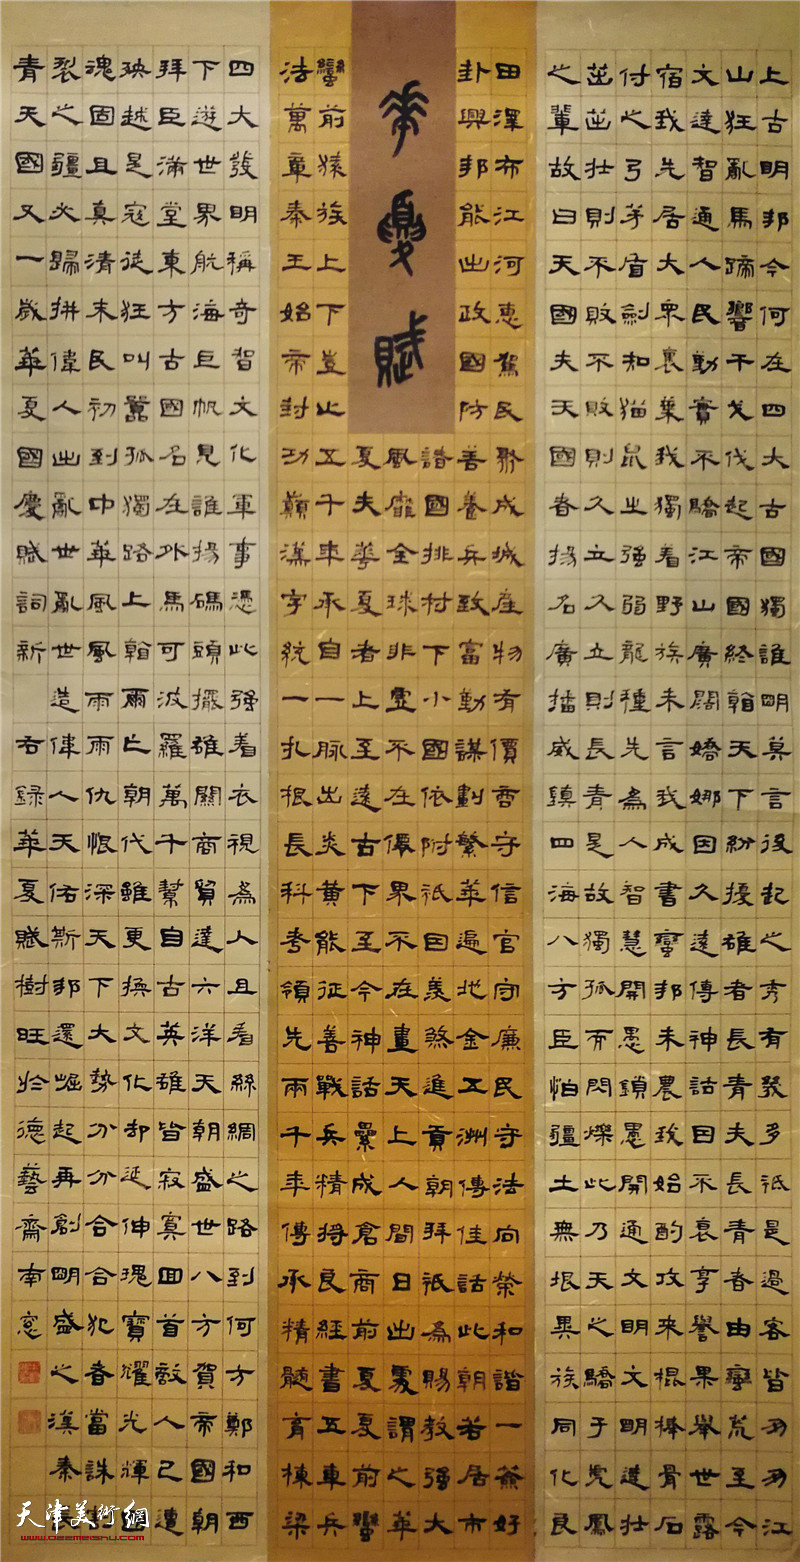 華夏賦
上古明邦今何在四大古國獨誰明莫言後起之秀有幾多祇是過客皆匆匆江
山狂亂馬蹄響干戈伐起帝國終翰天下紛擾雄者長青夫長青春由蠻荒至今
文達智通人民勤實不驕江山廣闊嬌娜因久遠傳神話因不衰享譽果舉世露
宿我先居大衆裹葉我獨着野族未言我成書蠻邦未農我始酌攻來棍棒骨石
付之弓矛盾劍和猫鼠之强弱龍種先為人智慧開愚鎖愚開通文明文明造壯
茁茁壯則不敗不敗則久立久立則長青是故獨孤而閃爍此乃天之驕子虎鳳
之輩故曰天國夫天國者揚名廣播威鎮四海八方臣怕疆土無垠異族同化良
田澤布江河惠駕民聚成城産物有價香守信官守廉民守法向榮和諧一爺好
卦興邦能出政國防善養兵致富勤謀劃繁華遍地金五洲傳佳話此朝若居市
諧國排村下小國依附祇因羨煞進貢朝拜祇為賜教强大
風靡全球非靈不在僊界不在畫天上人間日出處謂之華
夏夫華夏者上至遠古下至今神話纍成倉商前夏夏前蠻
蠻前猿族上下豈止五千年承自一脉出炎黄能征善戰兵精將良經書五車兵
法萬章秦王始帝封功巔漢字統一扎根長科考領先兩千年傳承精髓育棟梁
四大發明稱奇智文化軍事憑此强着衣視為人且看絲綢之路到何方鄭和西
下遊世界航海巨帆見誰揚碼頭擺雄關商貿達六洋天朝盛世八方賀帝國朝
拜臣滿堂東方古國名在外馬可波羅萬千幫自古英雄皆寂寞回首敵人已遭
殃越是寇徒狂叫囂孤獨路上翰爾亡朝代雖更換文化却延伸瑰寶耀光輝國
魂固且真清末民初到中華風風雨雨仇恨深天下大勢分分合合犯者當誅
裂之疆火歸拼偉人出亂世亂世造偉人天佑斯邦還崛起再創明盛之漢秦
青天國又一歲華夏國慶賦詞新 右録華夏賦樹旺於德藝齋南窗
天津美術網